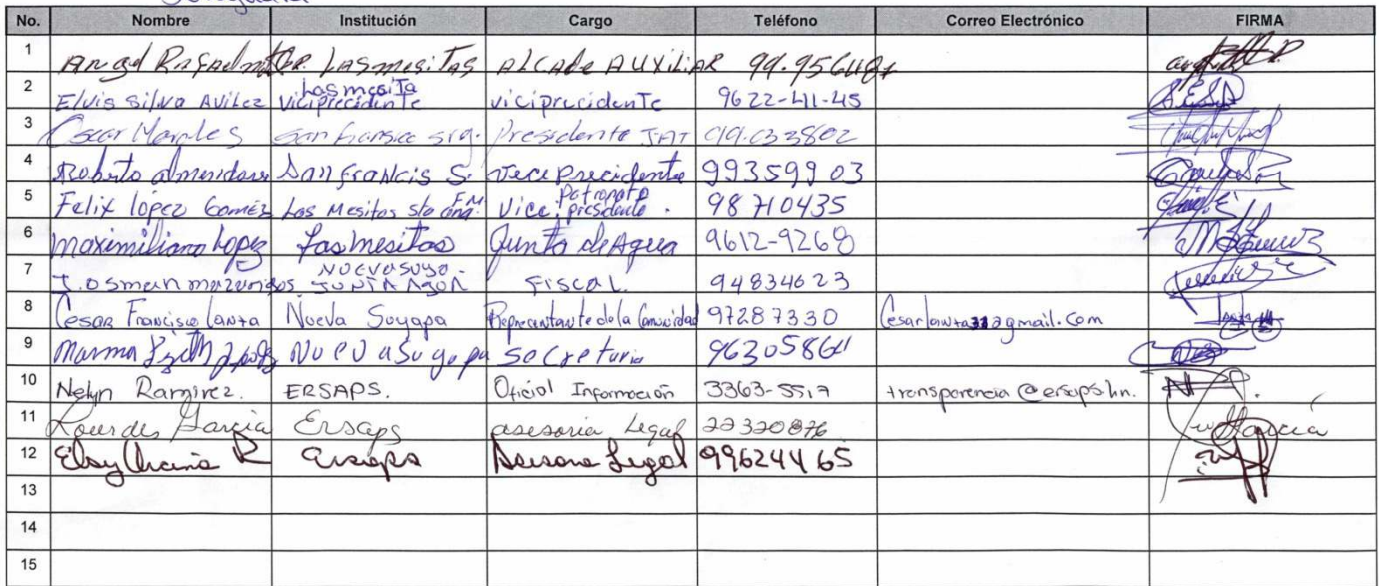 No. Nombre Institución Cargo Teléfono Correo Electrónico FIRMA
1 Angel Rafael CR. Las mesitas ALCAde AUXILIAR
2 Elvis Silva Avilez Las mesita viciprecidente viciprecidente 9622-411-45
3 Oscar Morales Presidente JAT 99.033802
4 Roberto San Francis S. vece precidente 99359903
5 Felix López Goméz Las Mesitas sta ana F.M. Vice presidente Patronato . 98710435
6 maximiliano Lopez Las mesitas Junta de Agua 9612-9268
7 J. osman NUEVA SUYA- JUNTA AGUA Fiscal. 94834623
8 Cesar Francisco Lanza Nueva Suyapa Representante de la Comunidad 97287330
9 Nueva Suyapa Secretaria
10 Nelyn Ramirez. ERSAPS. Oficial Información 3363-5517 transparencia@ersaps.hn.
11 Lourdes Garcia Ersaps asesoria Legal 22320876 Garcia
12 ersaps Asesora Legal 99624465
13
14
15